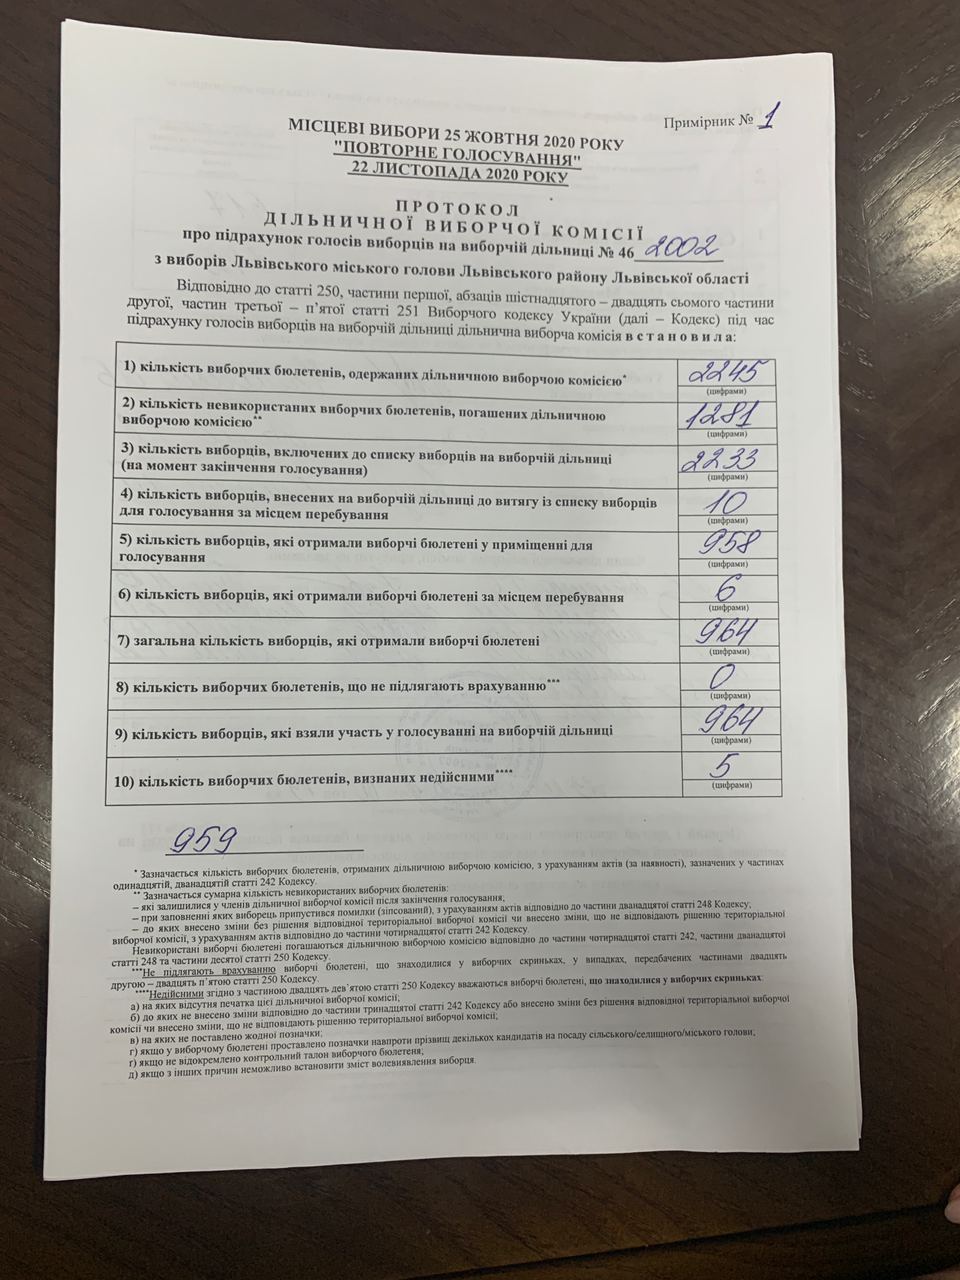 Примірник № 1
МІСЦЕВІ ВИБОРИ 25 ЖОВТНЯ 2020 РОКУ
"ПОВТОРНЕ ГОЛОСУВАННЯ"
22 ЛИСТОПАДА 2020 РОКУ
ПРОТОКОЛ
ДІЛЬНИЧНОЇ ВИБОРЧОЇ КОМІСІЇ
про підрахунок голосів виборців на виборчій дільниці № 46 2002
з виборів Львівського міського голови Львівського району Львівської області
Відповідно до статті 250, частини першої, абзаців шістнадцятого – двадцять сьомого частини
другої, частин третьої – п'ятої статті 251 Виборчого кодексу України (далі – Кодекс) під час
підрахунку голосів виборців на виборчій дільниці дільнична виборча комісія встановила:
1) кількість виборчих бюлетенів, одержаних дільничною виборчою комісією* 2245
(цифрами)
2) кількість невикористаних виборчих бюлетенів, погашених дільничною
виборчою комісією** 1281
(цифрами)
3) кількість виборців, включених до списку виборців на виборчій дільниці
(на момент закінчення голосування) 2233
(цифрами)
4) кількість виборців, внесених на виборчій дільниці до витягу із списку виборців
для голосування за місцем перебування 10
(цифрами)
5) кількість виборців, які отримали виборчі бюлетені у приміщенні для
голосування 958
(цифрами)
6) кількість виборців, які отримали виборчі бюлетені за місцем перебування 6
(цифрами)
7) загальна кількість виборців, які отримали виборчі бюлетені 964
(цифрами)
8) кількість виборчих бюлетенів, що не підлягають врахуванню*** 0
(цифрами)
9) кількість виборців, які взяли участь у голосуванні на виборчій дільниці 964
(цифрами)
10) кількість виборчих бюлетенів, визнаних недійсними**** 5
(цифрами)
959
* Зазначається кількість виборчих бюлетенів, отриманих дільничною виборчою комісією, з урахуванням актів (за наявності), зазначених у частинах
одинадцятій, дванадцятій статті 242 Кодексу.
** Зазначається сумарна кількість невикористаних виборчих бюлетенів:
– які залишилися у членів дільничної виборчої комісії після закінчення голосування;
– при заповненні яких виборець припустився помилки (зіпсований), з урахуванням актів відповідно до частини дванадцятої статті 248 Кодексу;
– до яких внесено зміни без рішення відповідної територіальної виборчої комісії чи внесено зміни, що не відповідають рішенню територіальної
виборчої комісії, з урахуванням актів відповідно до частини чотирнадцятої статті 242 Кодексу.
Невикористані виборчі бюлетені погашаються дільничною виборчою комісією відповідно до частини чотирнадцятої статті 242, частини дванадцятої
статті 248 та частини десятої статті 250 Кодексу.
***Не підлягають врахуванню виборчі бюлетені, що знаходилися у виборчих скриньках, у випадках, передбачених частинами двадцять
другою – двадцять п'ятою статті 250 Кодексу.
****Недійсними згідно з частиною двадцять дев'ятою статті 250 Кодексу вважаються виборчі бюлетені, що знаходилися у виборчих скриньках:
а) на яких відсутня печатка цієї дільничної виборчої комісії;
б) до яких не внесено зміни відповідно до частини тринадцятої статті 242 Кодексу або внесено зміни без рішення відповідної територіальної виборчої
комісії чи внесено зміни, що не відповідають рішенню територіальної виборчої комісії;
в) на яких не поставлено жодної позначки;
г) якщо у виборчому бюлетені проставлено позначки навпроти прізвищ декількох кандидатів на посаду сільського/селищного/міського голови;
ґ) якщо не відокремлено контрольний талон виборчого бюлетеня;
д) якщо з інших причин неможливо встановити зміст волевиявлення виборця.